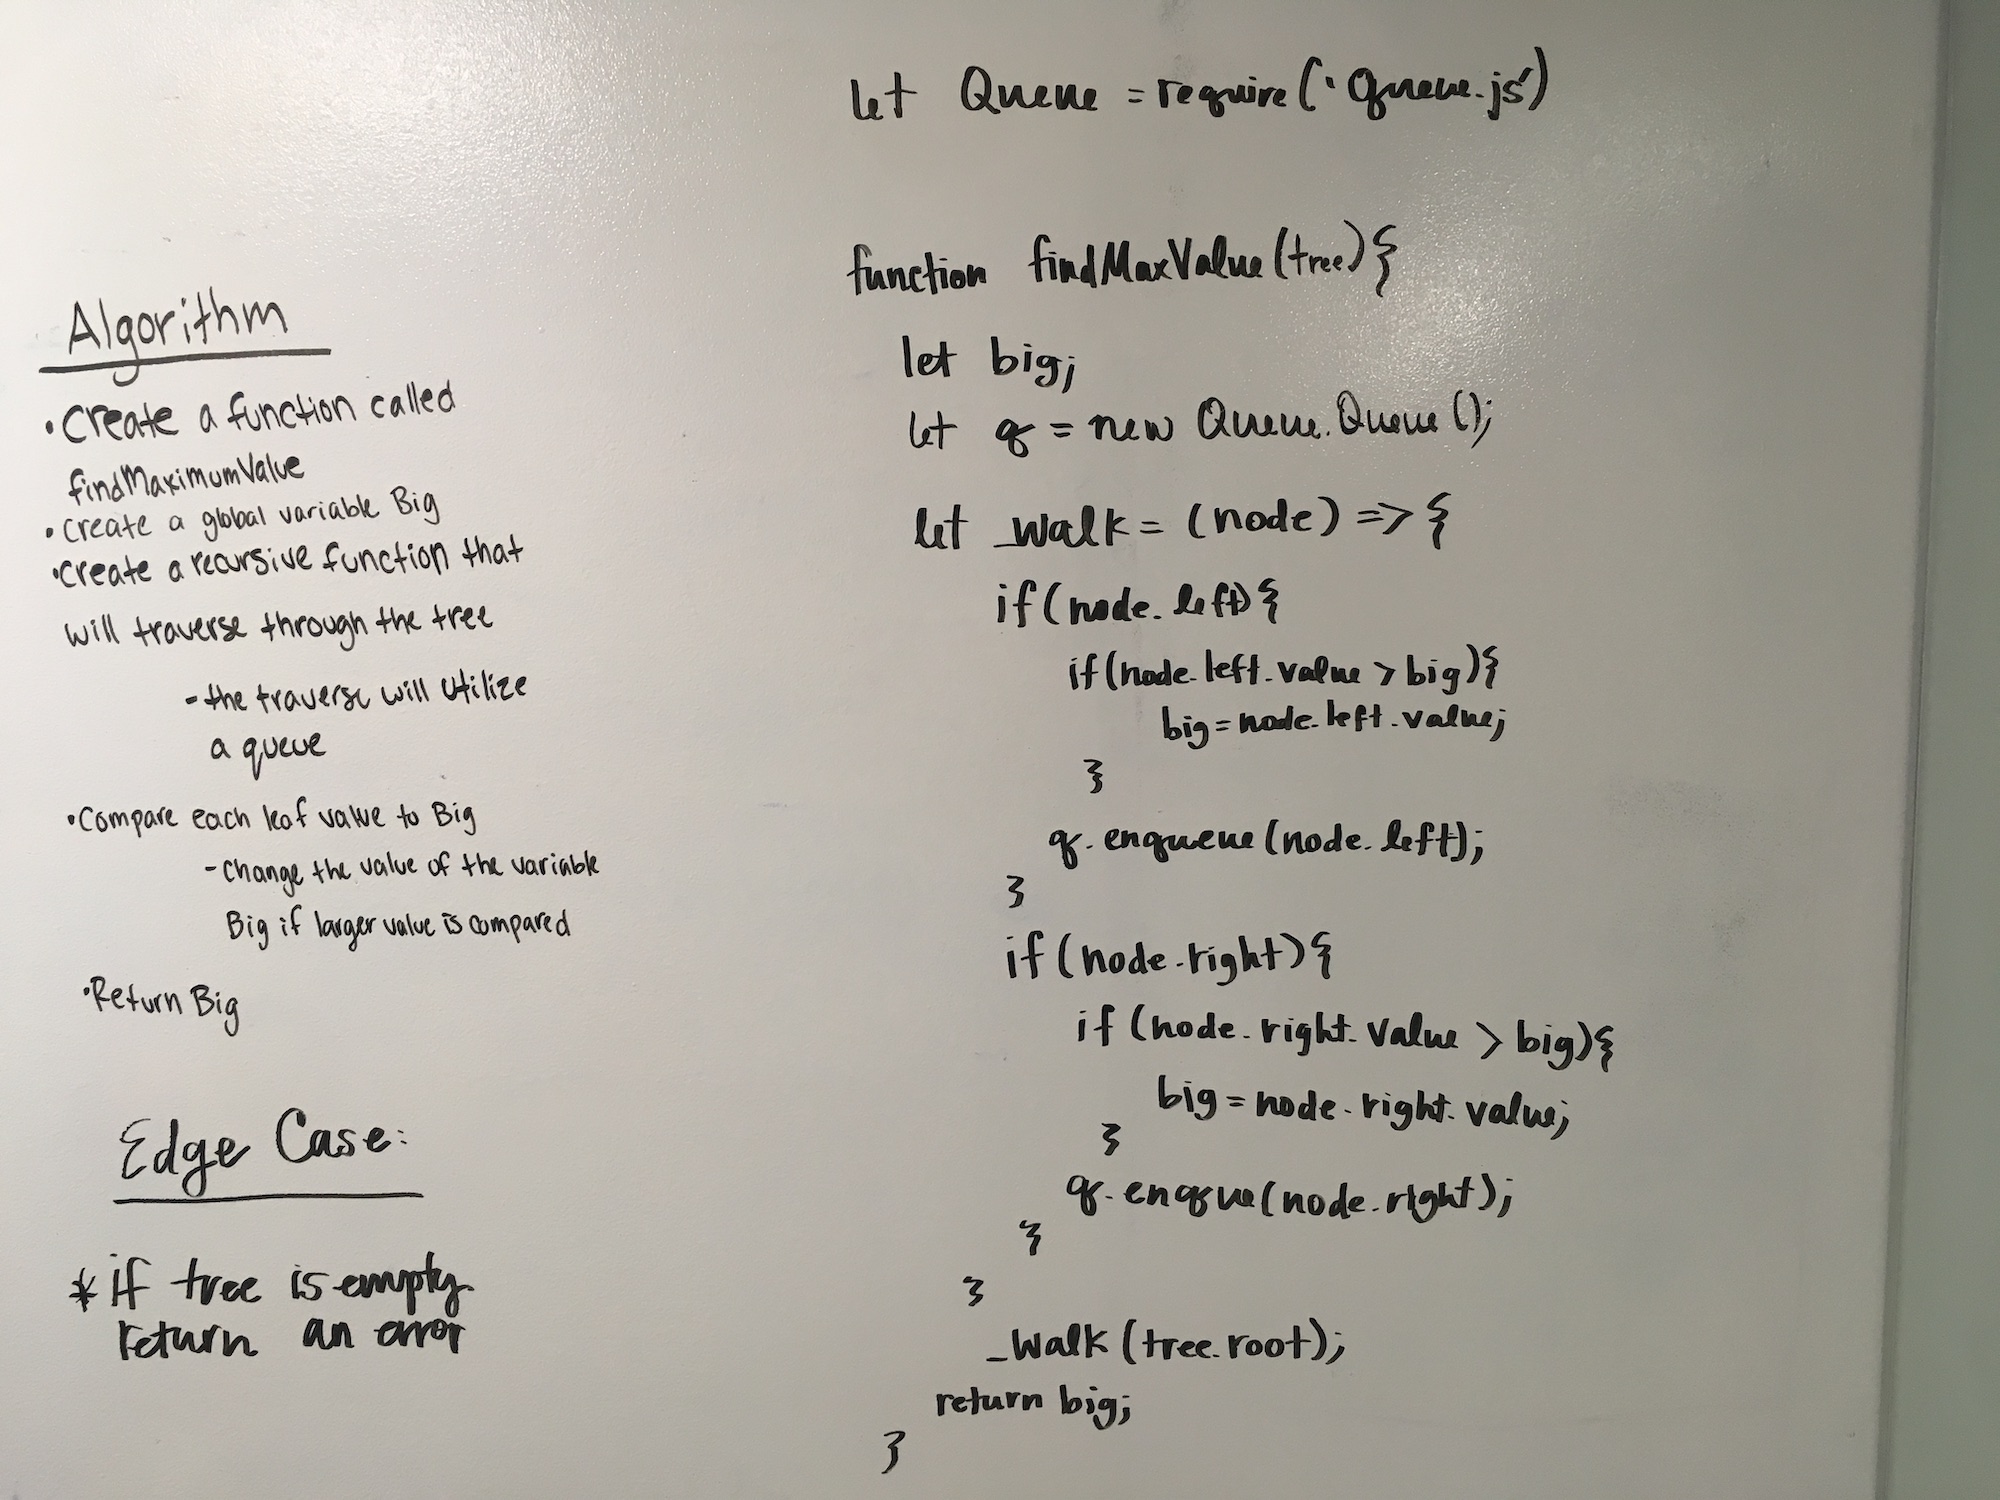 Algorithm
• Create a function called
findMaximumValue
• Create a global variable Big
• Create a recursive function that
will traverse through the tree
- the traverse will utilize
a queue
• Compare each leaf value to Big
- Change the value of the variable
Big if larger value is compared
• Return Big
Edge Case:
* if tree is empty
return an error
let Queue = require('queue.js')
function findMaxValue(tree){
let big;
let q = new Queue.Queue();
let _walk = (node) => {
if(node.left){
if(node.left.value > big){
big = node.left.value;
}
q.enqueue(node.left);
}
if(node.right){
if(node.right.value > big){
big = node.right.value;
}
q.enqque(node.right);
}
}
_walk(tree.root);
return big;
}